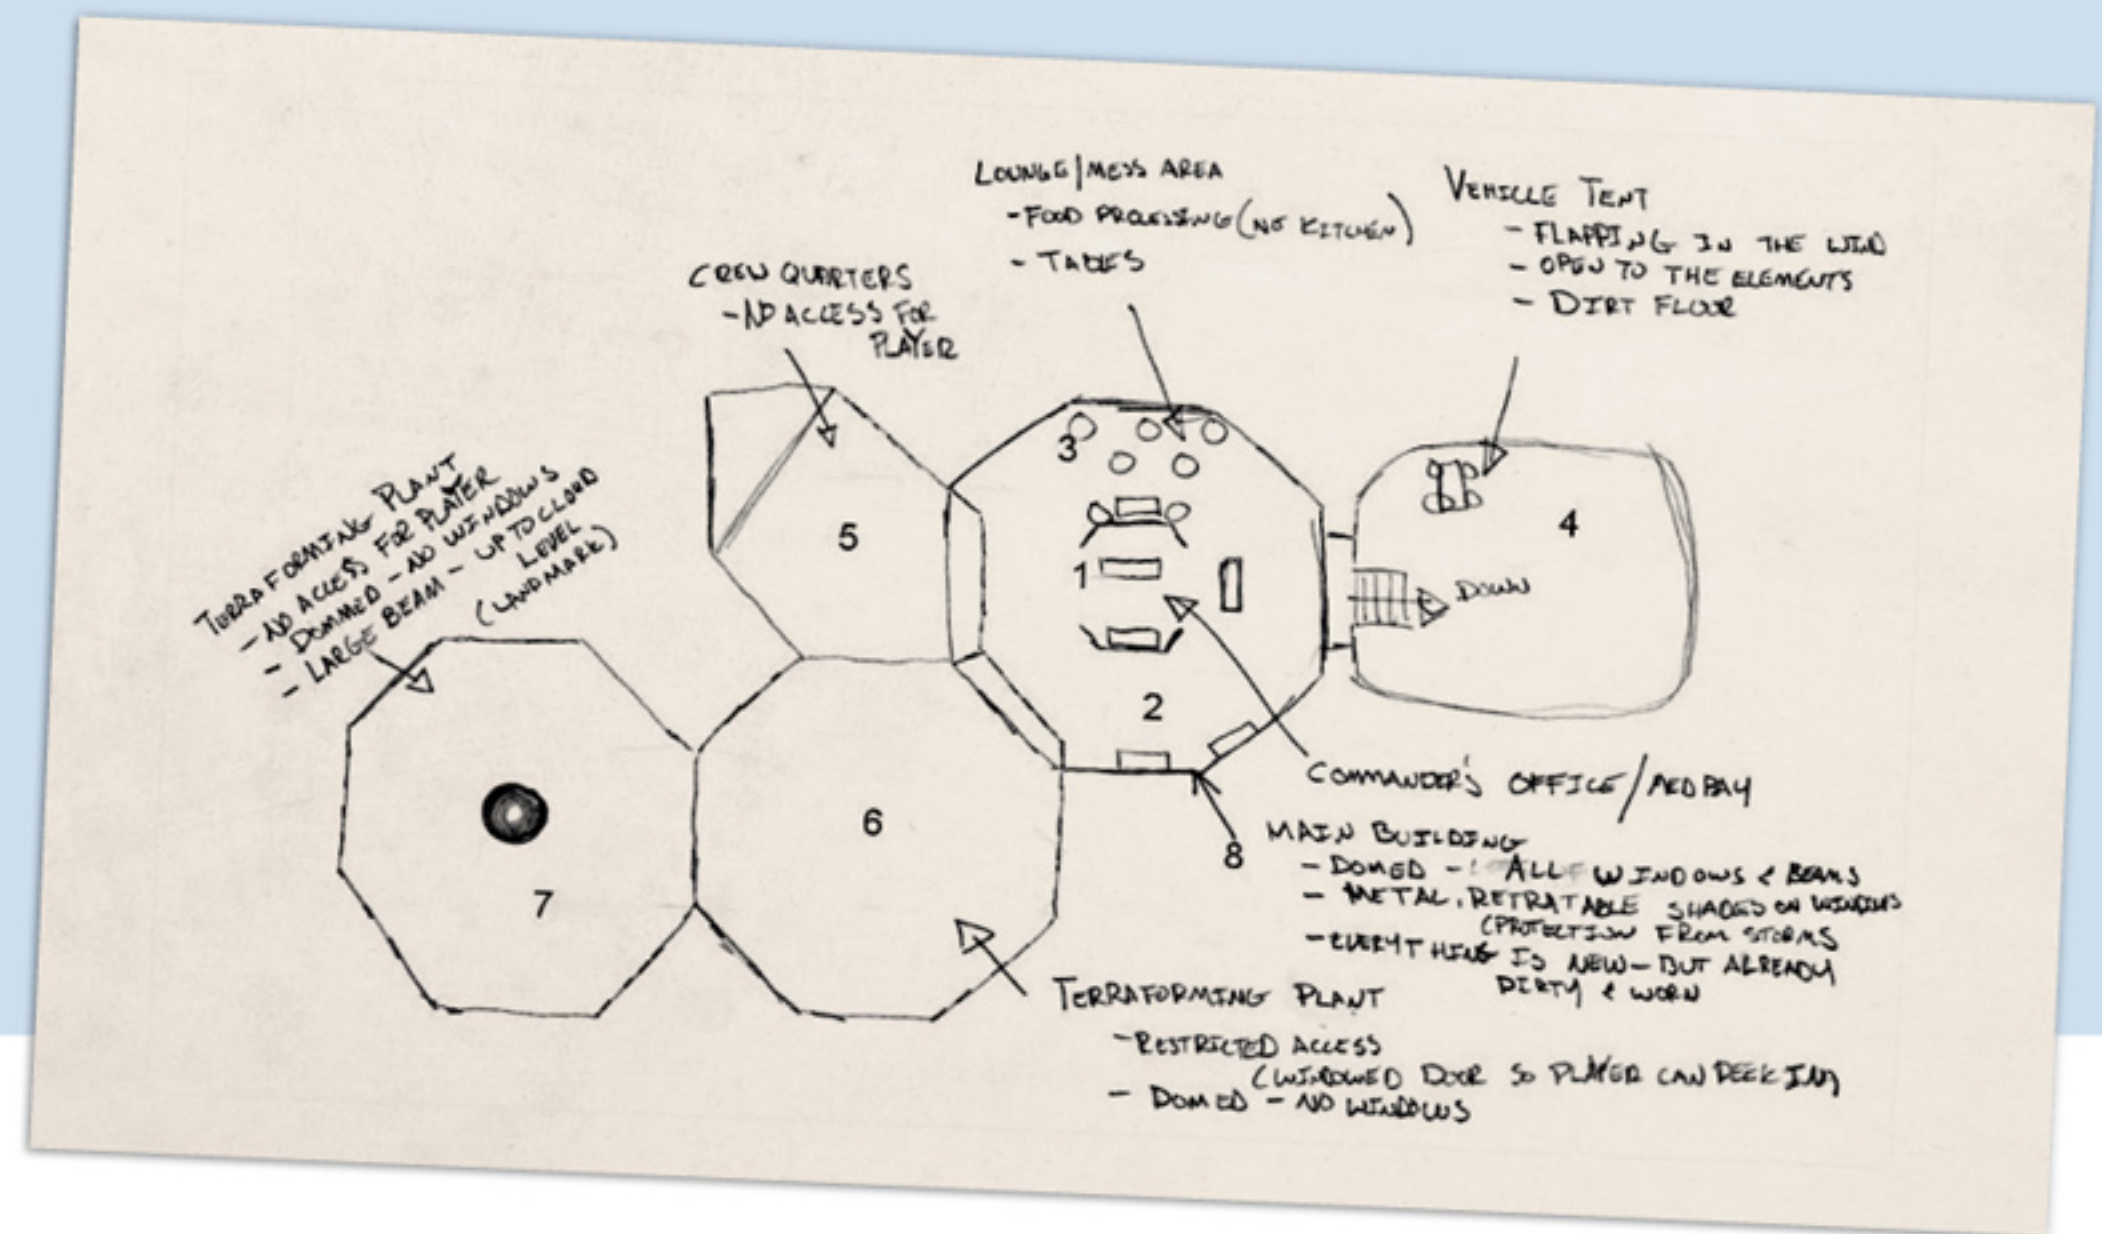 LOUNGE/MESS AREA
-FOOD PROCESSING (NO KITCHEN)
- TABLES
VEHICLE TENT
- FLAPPING IN THE WIND
- OPEN TO THE ELEMENTS
- DIRT FLOOR
CREW QUARTERS
-NO ACCESS FOR
PLAYER
TERRAFORMING PLANT
- NO ACCESS FOR PLAYER
- DOMMED - NO WINDOWS
- LARGE BEAM - UP TO CLOUD
LEVEL
(LANDMARK)
3
5
1
4
DOWN
2
6
7
8
COMMANDER'S OFFICE/MEDBAY
MAIN BUILDING
- DOMED - ALL WINDOWS & BEAMS
- METAL, RETRATABLE SHADES ON WINDOWS
(PROTECTION FROM STORMS
- EVERYTHING IS NEW - BUT ALREADY
DIRTY & WORN
TERRAFORMING PLANT
-RESTRICTED ACCESS
(WINDOWED DOOR SO PLAYER CAN PEEK IN)
- DOMED - NO WINDOWS